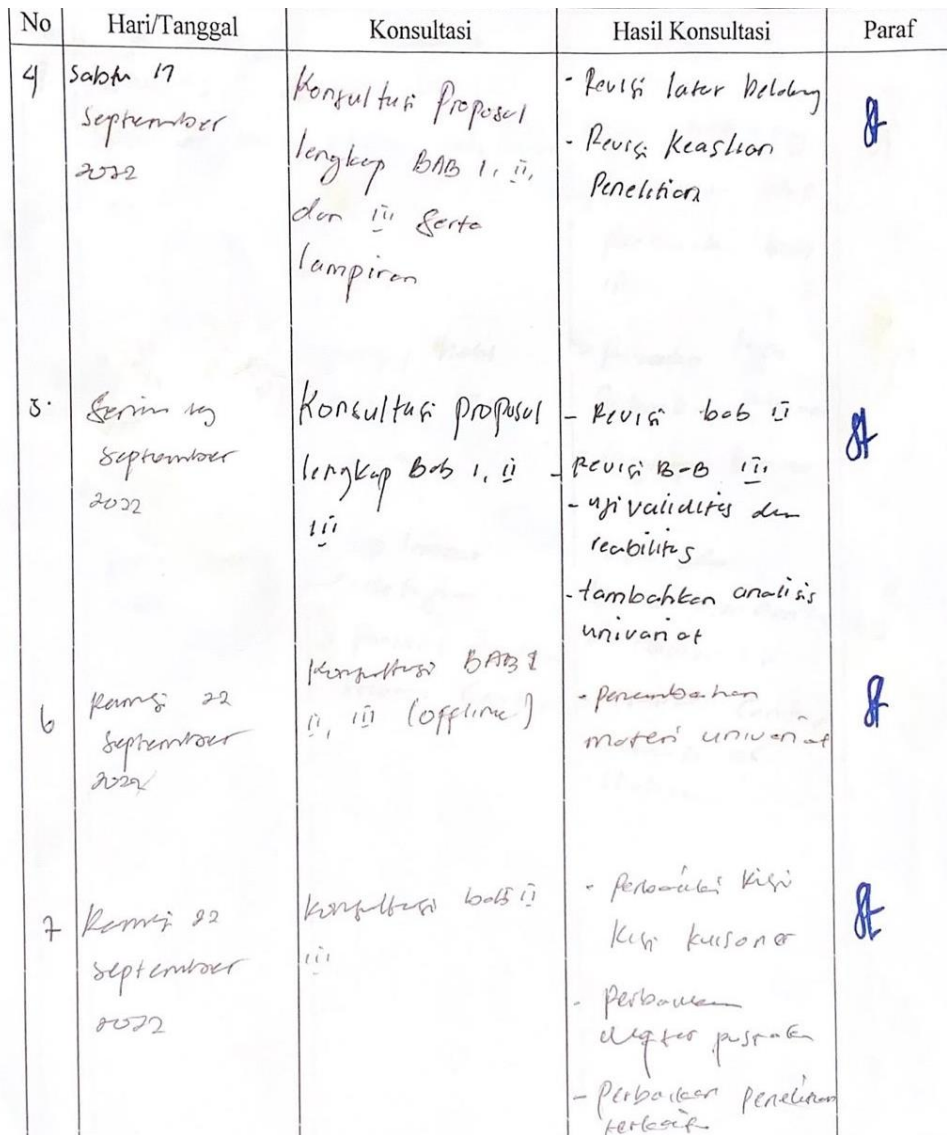 No Hari/Tanggal Konsultasi Hasil Konsultasi Paraf
4 Sabtu 17
September
2022
Konsultasi Proposal
lengkap BAB I, II,
dan III serta
lampiran
- Revisi latar belakang
- Revisi Keaslian
Penelitian
5. Senin 19
September
2022
Konsultasi proposal
lengkap Bab I, II
III
- Revisi bab II
- Revisi BAB III
- uji validitas dan
reabilitas
- tambahkan analisis
univariat
6 Kamis 22
September
2022
Konsultasi BAB I
II, III (offline)
- penambahan
materi univariat
7 Kamis 22
September
2022
Konsultasi bab II
III
- Perbaiki kisi
kisi kuisoner
- Perbaikan
daftar pustaka
- Perbaikan penelitian
terkait